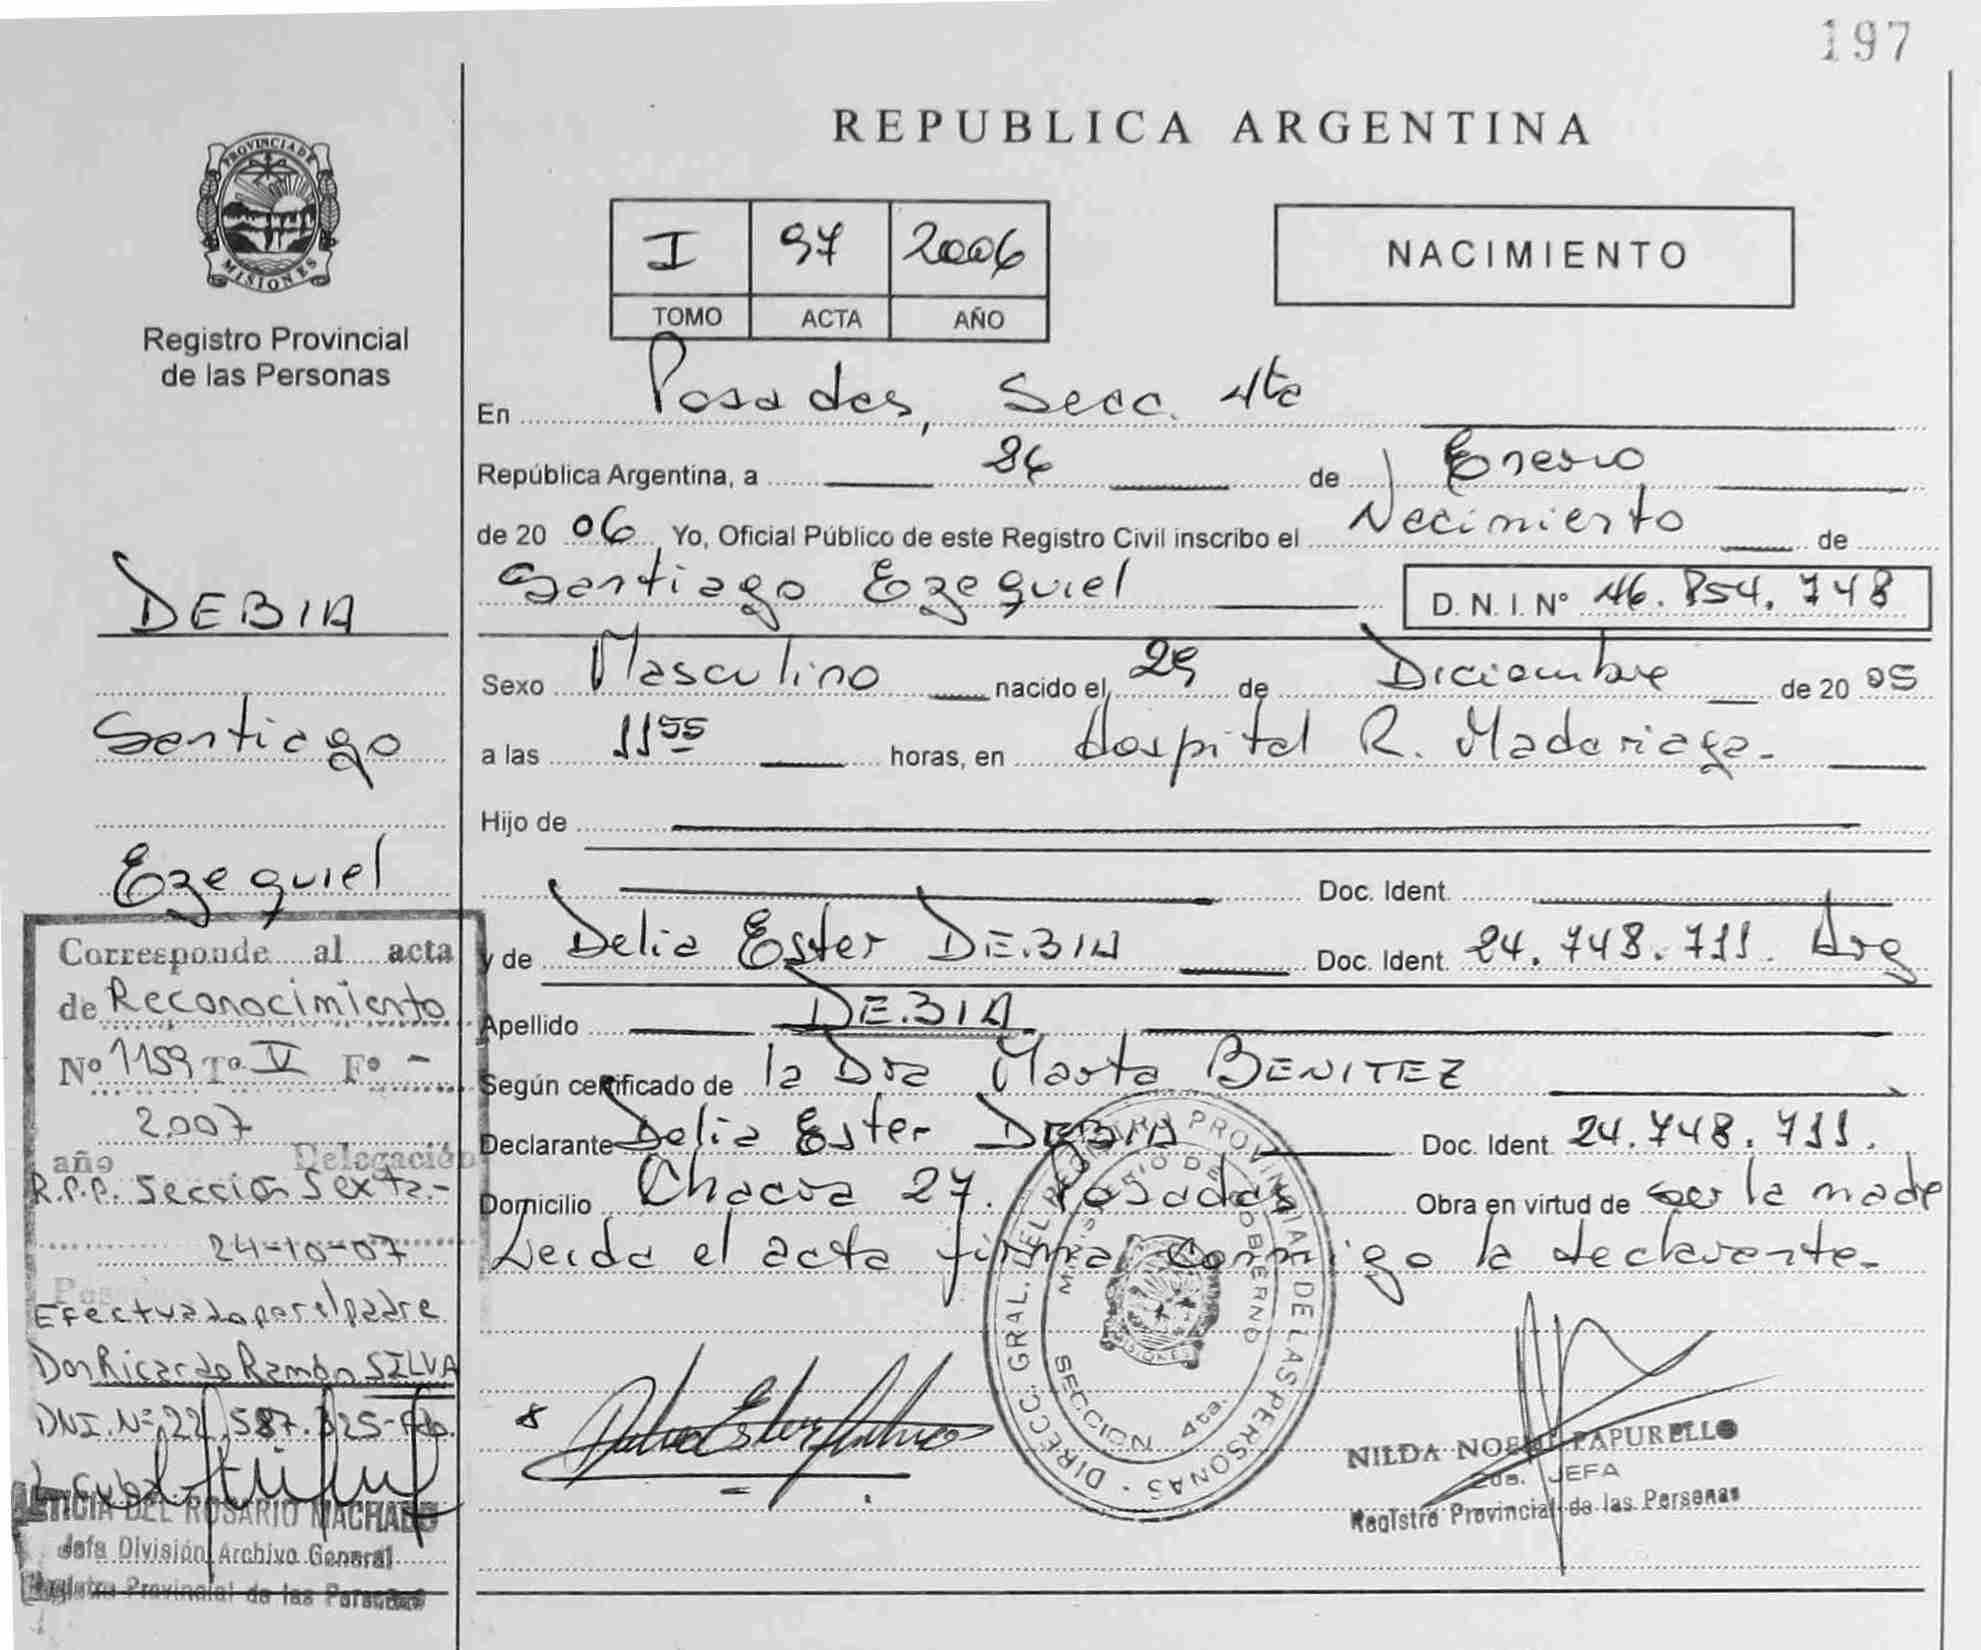 197
REPUBLICA ARGENTINA
PROVINCIA DE
MISIONES
Registro Provincial
de las Personas
I 97 2006
TOMO ACTA AÑO
NACIMIENTO
En Posadas, Secc. 4ta
República Argentina, a 26 de Enero
de 20 06 Yo, Oficial Público de este Registro Civil inscribo el Nacimiento de
Santiago Ezequiel D. N. I. Nº 46.854.748
Sexo Masculino nacido el 29 de Diciembre de 20 05
a las 11 55 horas, en Hospital R. Madariaga.
Hijo de
Doc. Ident.
y de Delia Ester DEBIA Doc. Ident. 24.748.711. Arg
Apellido DEBIA
Según certificado de la Dra Marta BENITEZ
Declarante Delia Ester DEBIA Doc. Ident. 24.748.711.
Domicilio Chacra 27. Posadas Obra en virtud de ser la madre
Leida el acta firma conmigo la declarante.
DIRECC. GRAL. DEL REGISTRO PROVINCIAL DE LAS PERSONAS
MINISTERIO DE GOBIERNO
SECCION 4ta.
MISIONES
NILDA NOEMI PAPURELLO
2da. JEFA
Registro Provincial de las Personas
DEBIA
Santiago
Ezequiel
Corresponde al acta
de Reconocimiento
Nº 1159 Tº V Fº -
2.007
año Delegación
R.P.P. Sección Sexta.-
24-10-07
Efectuado por el padre
Don Ricardo Ramón SILVA
DNI. Nº 22.587.325-
LETICIA DEL ROSARIO MACHADO
Jefa División Archivo General
Registro Provincial de las Personas